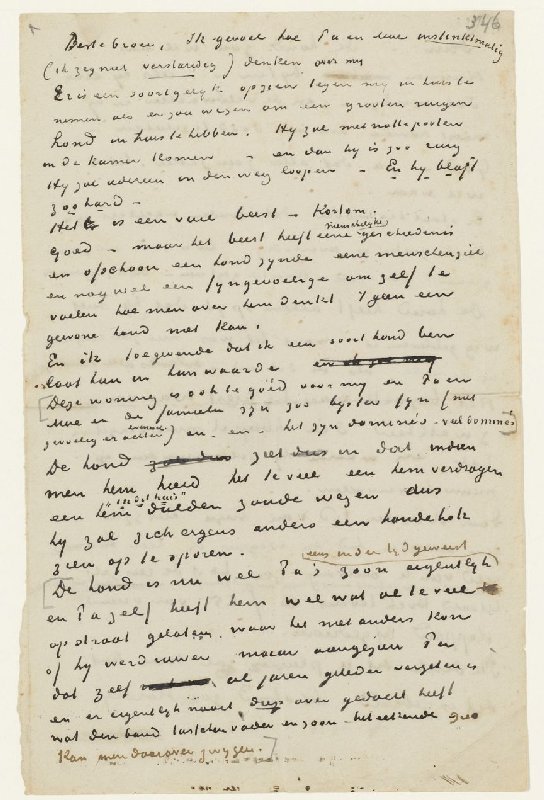 346
Beste broer, Ik gevoel hoe Pa en Moe instinktmatig
(ik zeg niet verstandig) denken over mij
Er is een soortgelyk opzien tegen my in huis te
nemen als er zou wezen om een grooten ruigen
hond in huis te hebben. Hy zal met natte pooten
in de kamer komen – en dan hy is zoo ruig
Hy zal iedereen in den weg loopen – En hy blaft
zoo hard –
Het is een vuil beest – Kortom.
Goed – maar het beest heeft eene menschelyke geschiedenis
en ofschoon een hond zynde eene menschenziel
en nog wel een fyngevoelige om zelf te
voelen hoe men over hem denkt 't geen een
gewone hond niet kan.
En ik toegevende dat ik een soort hond ben
laat hun in hun waarde
[Deze woning is ook te goed voor my en Pa en
Moe en de familie zyn zoo byster fyn (niet
gevoelig er achter evenwel) en. en. het zyn dominé's – veel dominé's]
De hond ziet dus in dat indien
men hem hield het te veel een hem verdragen
een hem dulden zoude wezen "in dit huis" dus
hy zal zich ergens anders een hondehok
zien op te sporen.
[De hond is nu wel Pa's zoon eigentlyk eens in der tyd geweest
en Pa zelf heeft hem wel wat al te veel
op straat gelaten, waar hy niet anders kon
of hy werd ruwer maar aangezien Pa
dat zelf al jaren geleden vergeten is
en er eigentlyk nooit diep over gedacht heeft
wat den band tusschen vader en zoon – beteekende
Kan men daarover zwygen.]